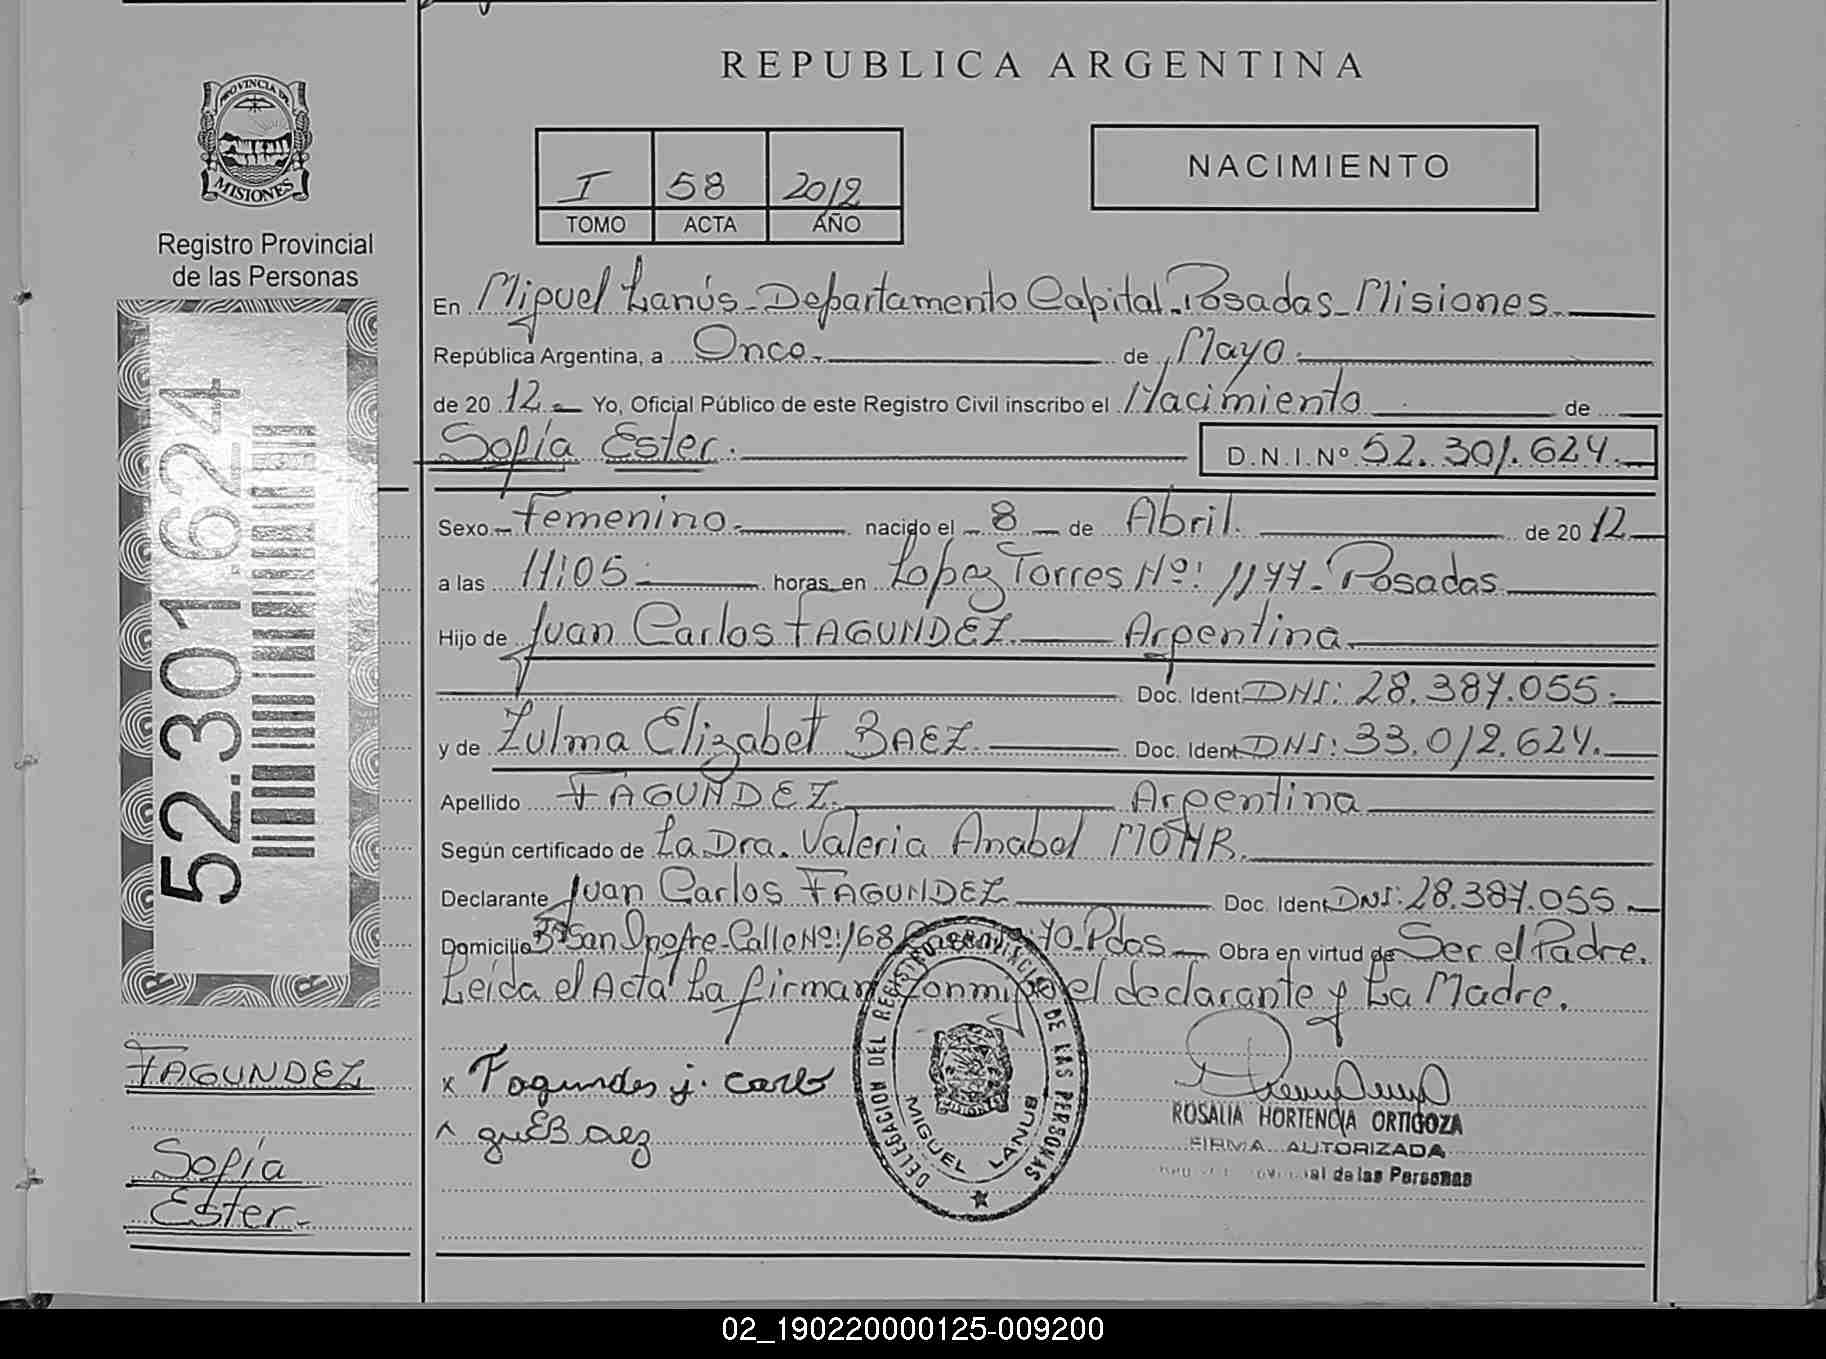 REPUBLICA ARGENTINA
PROVINCIA DE
MISIONES
Registro Provincial
de las Personas
I 58 2012
TOMO ACTA AÑO
NACIMIENTO
En Miguel Lanús - Departamento Capital - Posadas - Misiones.
República Argentina, a Once de Mayo
de 2012 Yo, Oficial Público de este Registro Civil inscribo el Nacimiento de
Sofía Ester. D.N.I.Nº 52.301.624
Sexo Femenino nacido el 8 de Abril de 2012
a las 11:05 horas en Lopez Torres Nº: 1177 - Posadas
Hijo de Juan Carlos FAGUNDEZ Argentina
Doc. Ident DNI: 28.387.055
y de Zulma Elizabet BAEZ Doc. Ident DNI: 33.012.624
Apellido FAGUNDEZ Argentina
Según certificado de La Dra. Valeria Anabel MOHR.
Declarante Juan Carlos FAGUNDEZ Doc. Ident DNI: 28.387.055
Domicilio Bº San Onofre - Calle Nº: 168 70 - Pdas Obra en virtud de Ser el Padre.
Leída el Acta La firman conmigo el declarante y La Madre.
52.301.624
FAGUNDEZ
Sofía
Ester.
x Fagundes j. carlo
DELEGACION DEL REGISTRO PROVINCIAL DE LAS PERSONAS
MISIONES
MIGUEL LANUS
ROSALIA HORTENCIA ORTIGOZA
FIRMA AUTORIZADA
de las Personas
02_190220000125-009200